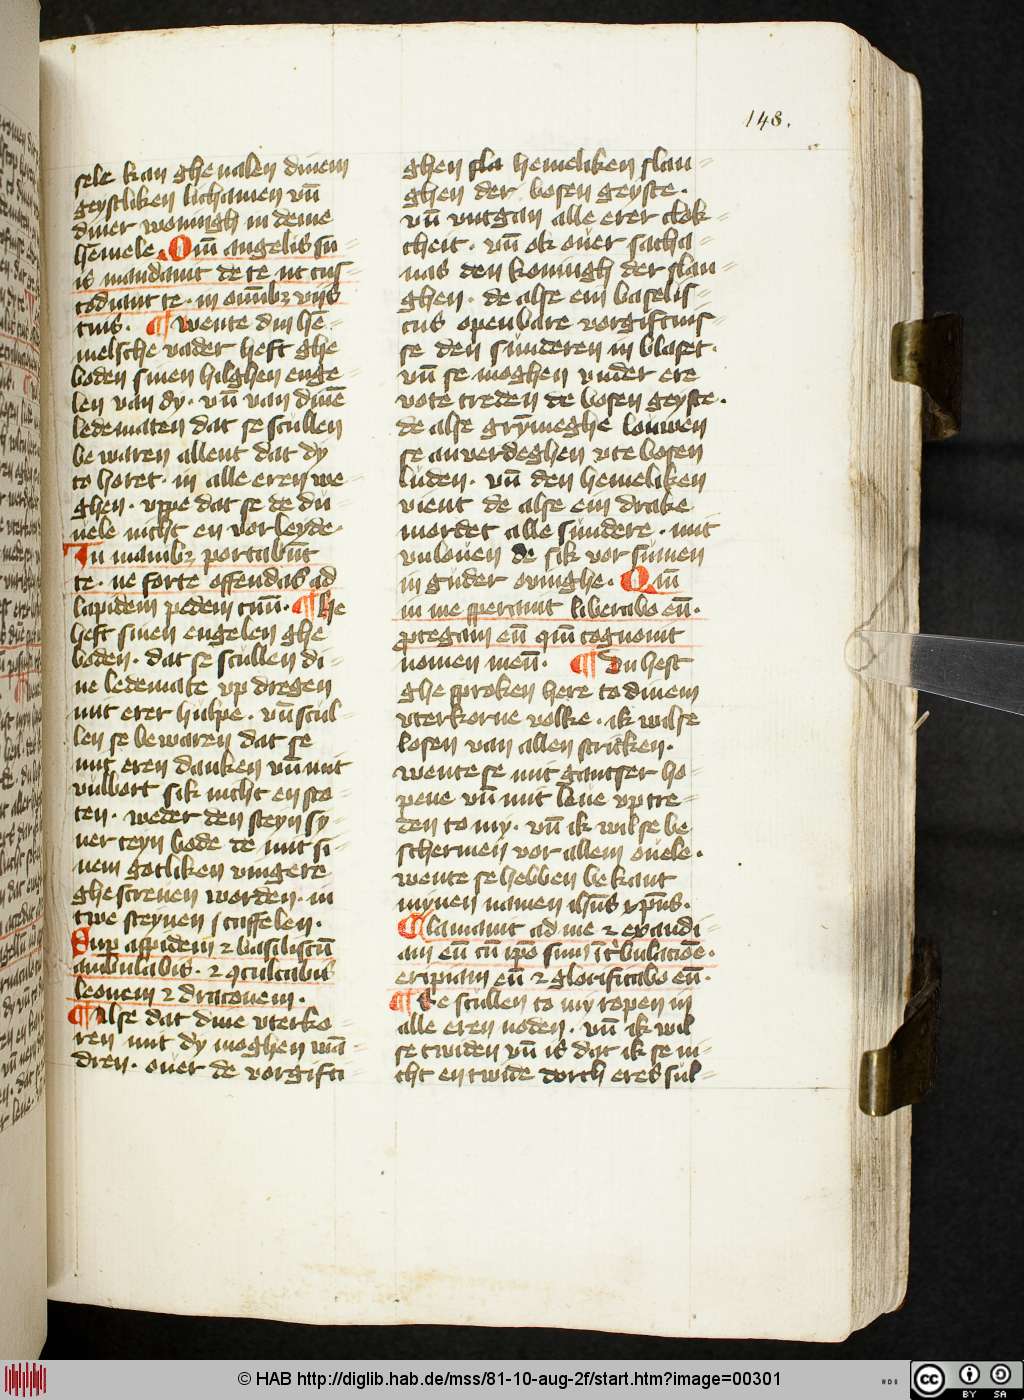 148.
sele kan ghe nalen dinem
geystliken lichamen vn̄
diner woningh in deme
hēmele. Qm̄ angelis su-
is mandauit de te ut cus-
todiant te. in omībꝫ viis
tuis. ¶ Wente din hē-
melsche vader heft ghe
boden sinen hilghen enge-
len van dy. vn̄ van dinē
ledematen dat se scullen
be waren allent dat dy
to horet. in alle eren we-
ghen. vppe dat se de du-
uele nicht en vorleyde.
In manibꝫ portabūt
te. ne forte offendas ad
lapidem pedem tuū. ¶ He
heft sinen engelen ghe
boden. dat se scullen di-
ne ledemate vp dregen
mit erer hulpe. vn̄ scul-
len se bewaren dat se
mit eren danken vn̄ mit
vulbort sik nicht en sto-
ten. weder den steyn sy-
ner teyn bode de mit si-
nem gotliken vingere
ghescreuen worden. in
twe steynen taffelen.
Sup̄ aspidem ⁊ basiliscū
ambulabis. ⁊ ꝯculcabis
leonem ⁊ draconem.
¶ Alse dat dine vterko-
ren mit dy moghen wā-
dren. ouer de vorgifti-
ghen sla hemeliken slan-
ghen der bosen geyste.
vn̄ vntgan alle erer clok-
cheit. vn̄ ok ouer satha-
nas den koningh der slan-
ghen. de alse ein baselis-
cus openbare vorgiftnis-
se den sunderen in blaset.
vn̄ se moghen vnder ere
vote treden de bosen geyste.
de alse grȳmeghe louwen
se anverdeghen vte bosen
luden. vn̄ den hemeliken
vient de alse ein drake
mordet alle sundere. mit
vnlouen de sik vor sumen
in guder ouinghe. Qm̄
in me sperauit liberabo eū.
ꝓtegam eū qm̄ cognouit
nomen meū. ¶ Du hest
ghe sproken here to dinem
vterkorne volke. ik wil se
losen van allen stricken.
wente se mit gantser ho-
pene vn̄ mit leue vp tre-
den to my. vn̄ ik wil se be
schermen vor allem ouele.
wente se hebben be kant
mynen namen ihsūs xp̄us.
Clamauit ad me ⁊ exaudi-
am eū cū ip̄o sum ī t̄bulacōe.
eripiam eū ⁊ glorificabo eū.
¶ Se scullen to my ropen in
alle eren noden. vn̄ ik wil
se twiden vn̄ is dat ik se ni-
cht en twide dorch eres sul-
© HAB http://diglib.hab.de/mss/81-10-aug-2f/start.htm?image=00301
cc BY SA